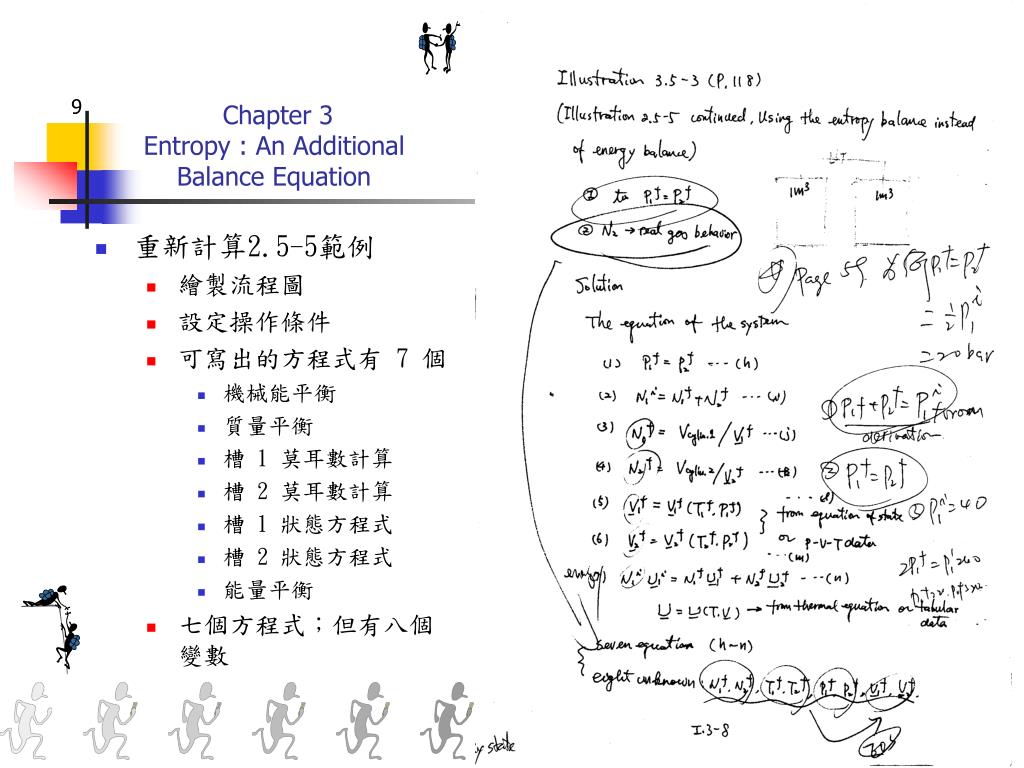 9
Chapter 3
Entropy : An Additional
Balance Equation
重新計算2.5-5範例
繪製流程圖
設定操作條件
可寫出的方程式有 7 個
機械能平衡
質量平衡
槽 1 莫耳數計算
槽 2 莫耳數計算
槽 1 狀態方程式
槽 2 狀態方程式
能量平衡
七個方程式；但有八個
變數
Illustration 3.5-3 (P.118)
(Illustration 2.5-5 continued, Using the entropy balance instead
of energy balance)
1m³ 1m³
① to P₁ᶠ = P₂ᶠ
② N₂ → real gas behavior
Page 59
P₁ᶠ = P₂ᶠ
= ½ P₁ⁱ
= 20 bar
Solution
The equation of the system
(1) P₁ᶠ = P₂ᶠ --- (h)
(2) N₁ⁱ = N₁ᶠ + N₂ᶠ ---
(3) N₁ᶠ = Vcylin.1 / V₁ᶠ --- (j)
(4) N₂ᶠ = Vcylin.2 / V₂ᶠ ---
(5) V₁ᶠ = V₁ᶠ (T₁ᶠ, P₁ᶠ)
(6) V₂ᶠ = V₂ᶠ (T₂ᶠ, P₂ᶠ)
from equation of state
or P-V-T data
--- (m)
① P₁ᶠ + P₂ᶠ = P₁ⁱ from
derivation
② P₁ᶠ = P₂ᶠ
P₁ⁱ = 40
N₁ⁱ U₁ⁱ = N₁ᶠ U₁ᶠ + N₂ᶠ U₂ᶠ --- (n)
U = U(T, V) → from thermal equation or tabular
data
seven equation (h~n)
eight unknown N₁ᶠ, N₂ᶠ, T₁ᶠ, T₂ᶠ, P₁ᶠ, P₂ᶠ, V₁ᶠ, V₂ᶠ
I.3-8
state